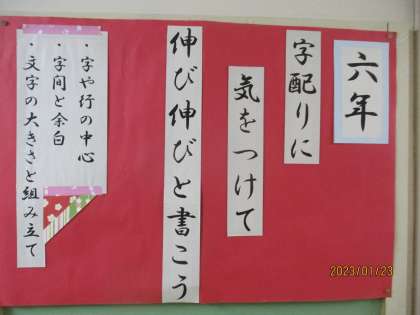 六年
字配りに
気をつけて
伸び伸びと書こう
・字や行の中心
・字間と余白
・文字の大きさと組み立て
2023/01/23